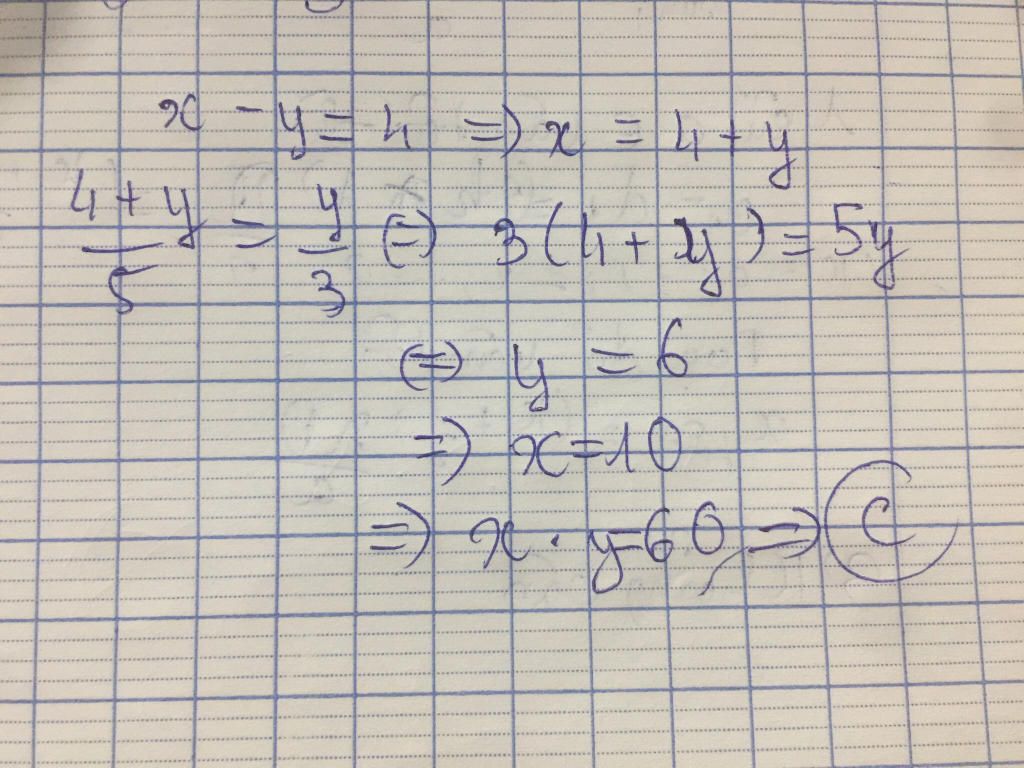 x - y = 4 => x = 4 + y
(4 + y)/5 = y/3 (=) 3(4 + y) = 5y
(=) y = 6
=) x = 10
=) x . y = 60 =) C